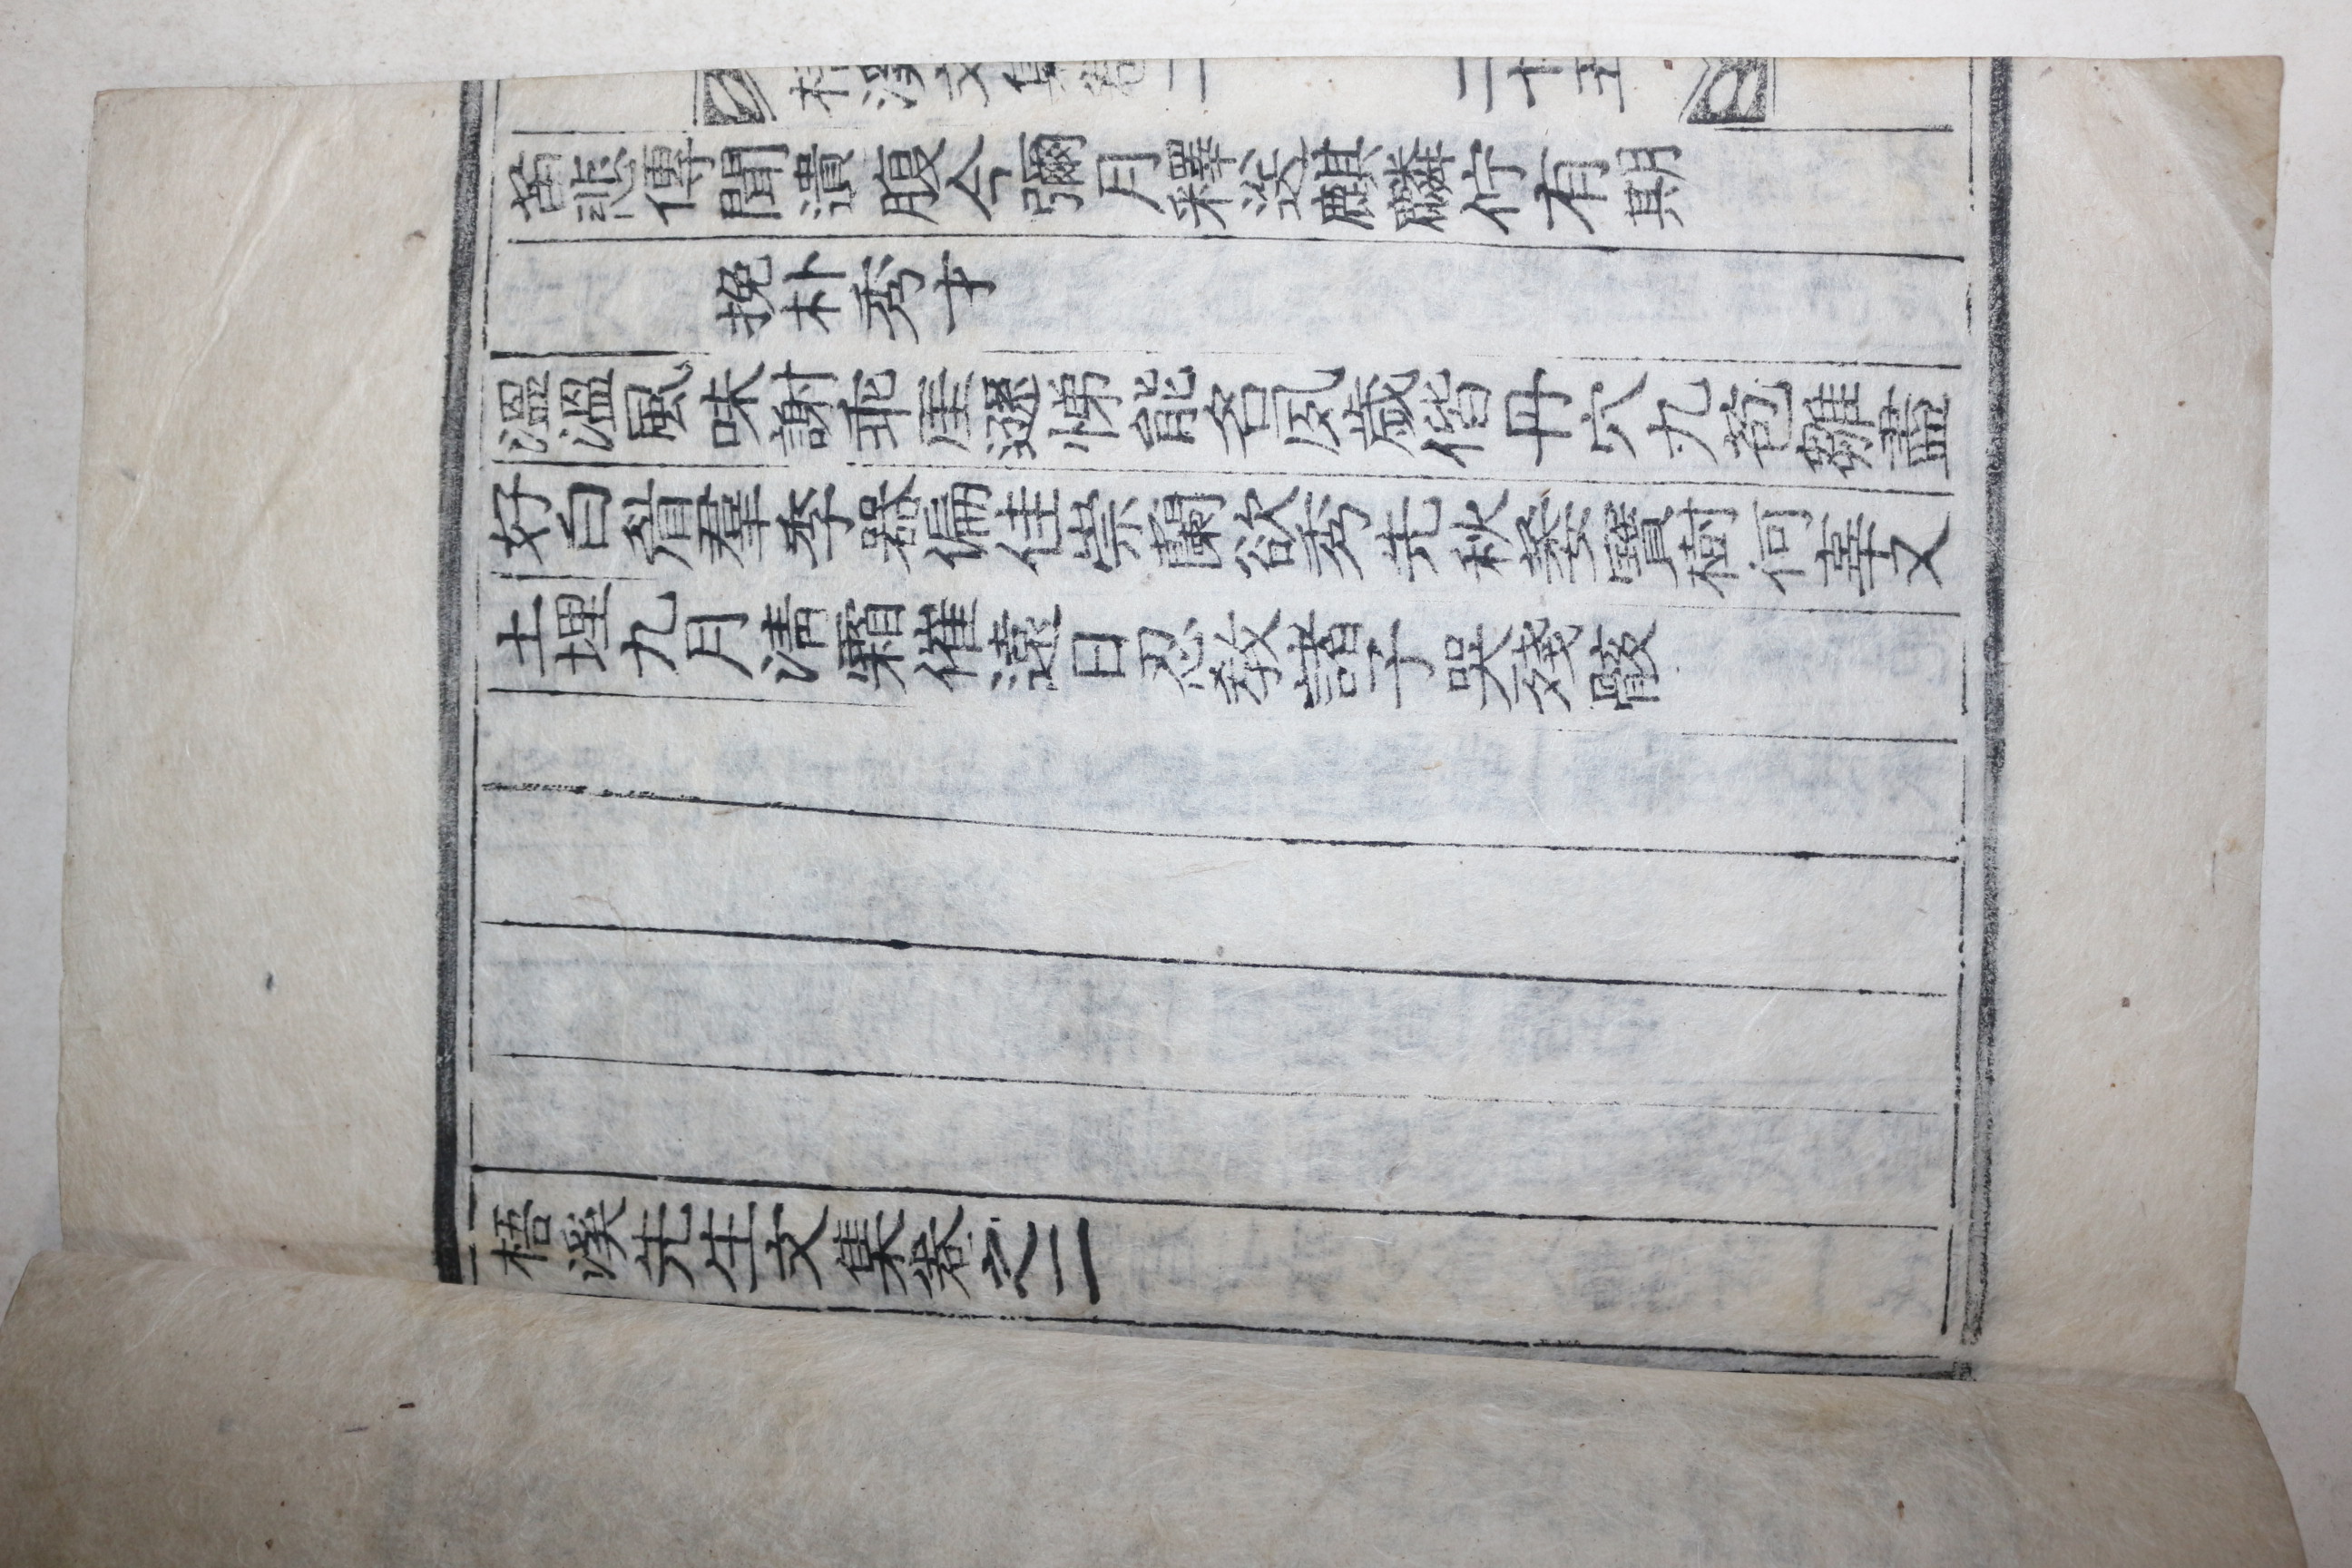 梧溪文集卷二 二十五
苗悲傳聞遺腹今彌月釋送麒麟佇有期
挽朴秀才
溫溫風味謝乖崖遜悌能名夙歲偕丹穴九苞雛盡
好白眉羣季器偏佳崇蘭欲秀先秋萎寶樹何辜文
土埋九月淸霜催遠日忍敎諸子哭殘骸
梧溪先生文集卷之二